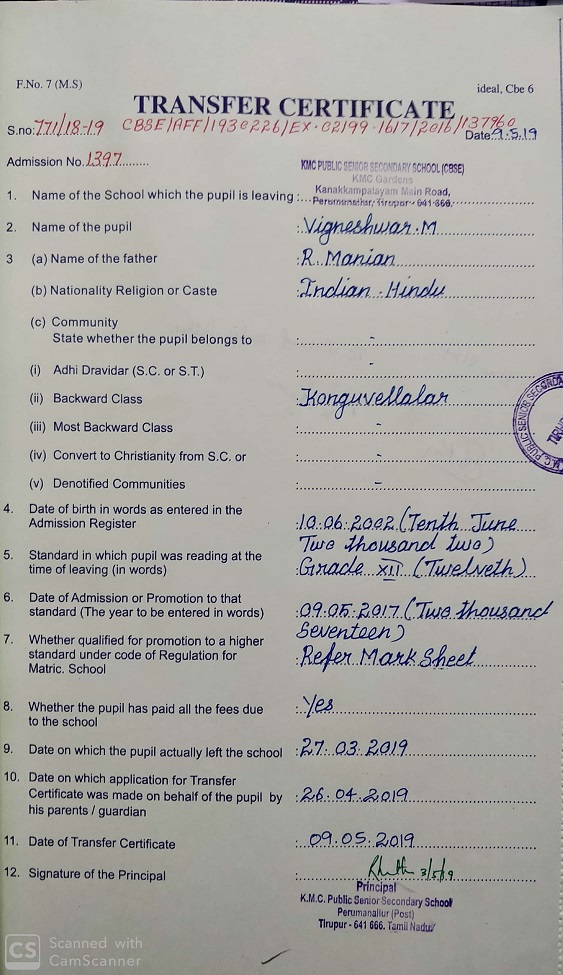 F.No. 7 (M.S)
ideal, Cbe 6
TRANSFER CERTIFICATE
S.no: 771/18-19 CBSE/AFF/1930226/EX-02199-1617/2016/137960
Date: 9.5.19
Admission No. 1397
KMC PUBLIC SENIOR SECONDARY SCHOOL (CBSE)
KMC Gardens
1. Name of the School which the pupil is leaving : Kanakkampalayam Main Road,
Perumanallur, Tirupur - 641 666.
2. Name of the pupil : Vigneshwar.M
3 (a) Name of the father : R. Manian
(b) Nationality Religion or Caste : Indian - Hindu
(c) Community
State whether the pupil belongs to : -
(i) Adhi Dravidar (S.C. or S.T.) : -
(ii) Backward Class : Konguvellalar
(iii) Most Backward Class : -
(iv) Convert to Christianity from S.C. or : -
(v) Denotified Communities : -
4. Date of birth in words as entered in the
Admission Register : 10.06.2002 (Tenth June
Two thousand two)
5. Standard in which pupil was reading at the
time of leaving (in words) : Grade XII (Twelveth)
6. Date of Admission or Promotion to that
standard (The year to be entered in words) : 09.05.2017 (Two thousand
Seventeen)
7. Whether qualified for promotion to a higher
standard under code of Regulation for : Refer Mark Sheet
Matric. School
8. Whether the pupil has paid all the fees due : Yes
to the school
9. Date on which the pupil actually left the school : 27.03.2019
10. Date on which application for Transfer
Certificate was made on behalf of the pupil by : 26.04.2019
his parents / guardian
11. Date of Transfer Certificate : 09.05.2019
12. Signature of the Principal : 3/5/19
Principal
K.M.C. Public Senior Secondary School
Perumanallur (Post)
Tirupur - 641 666. Tamil Nadu
CS Scanned with
CamScanner